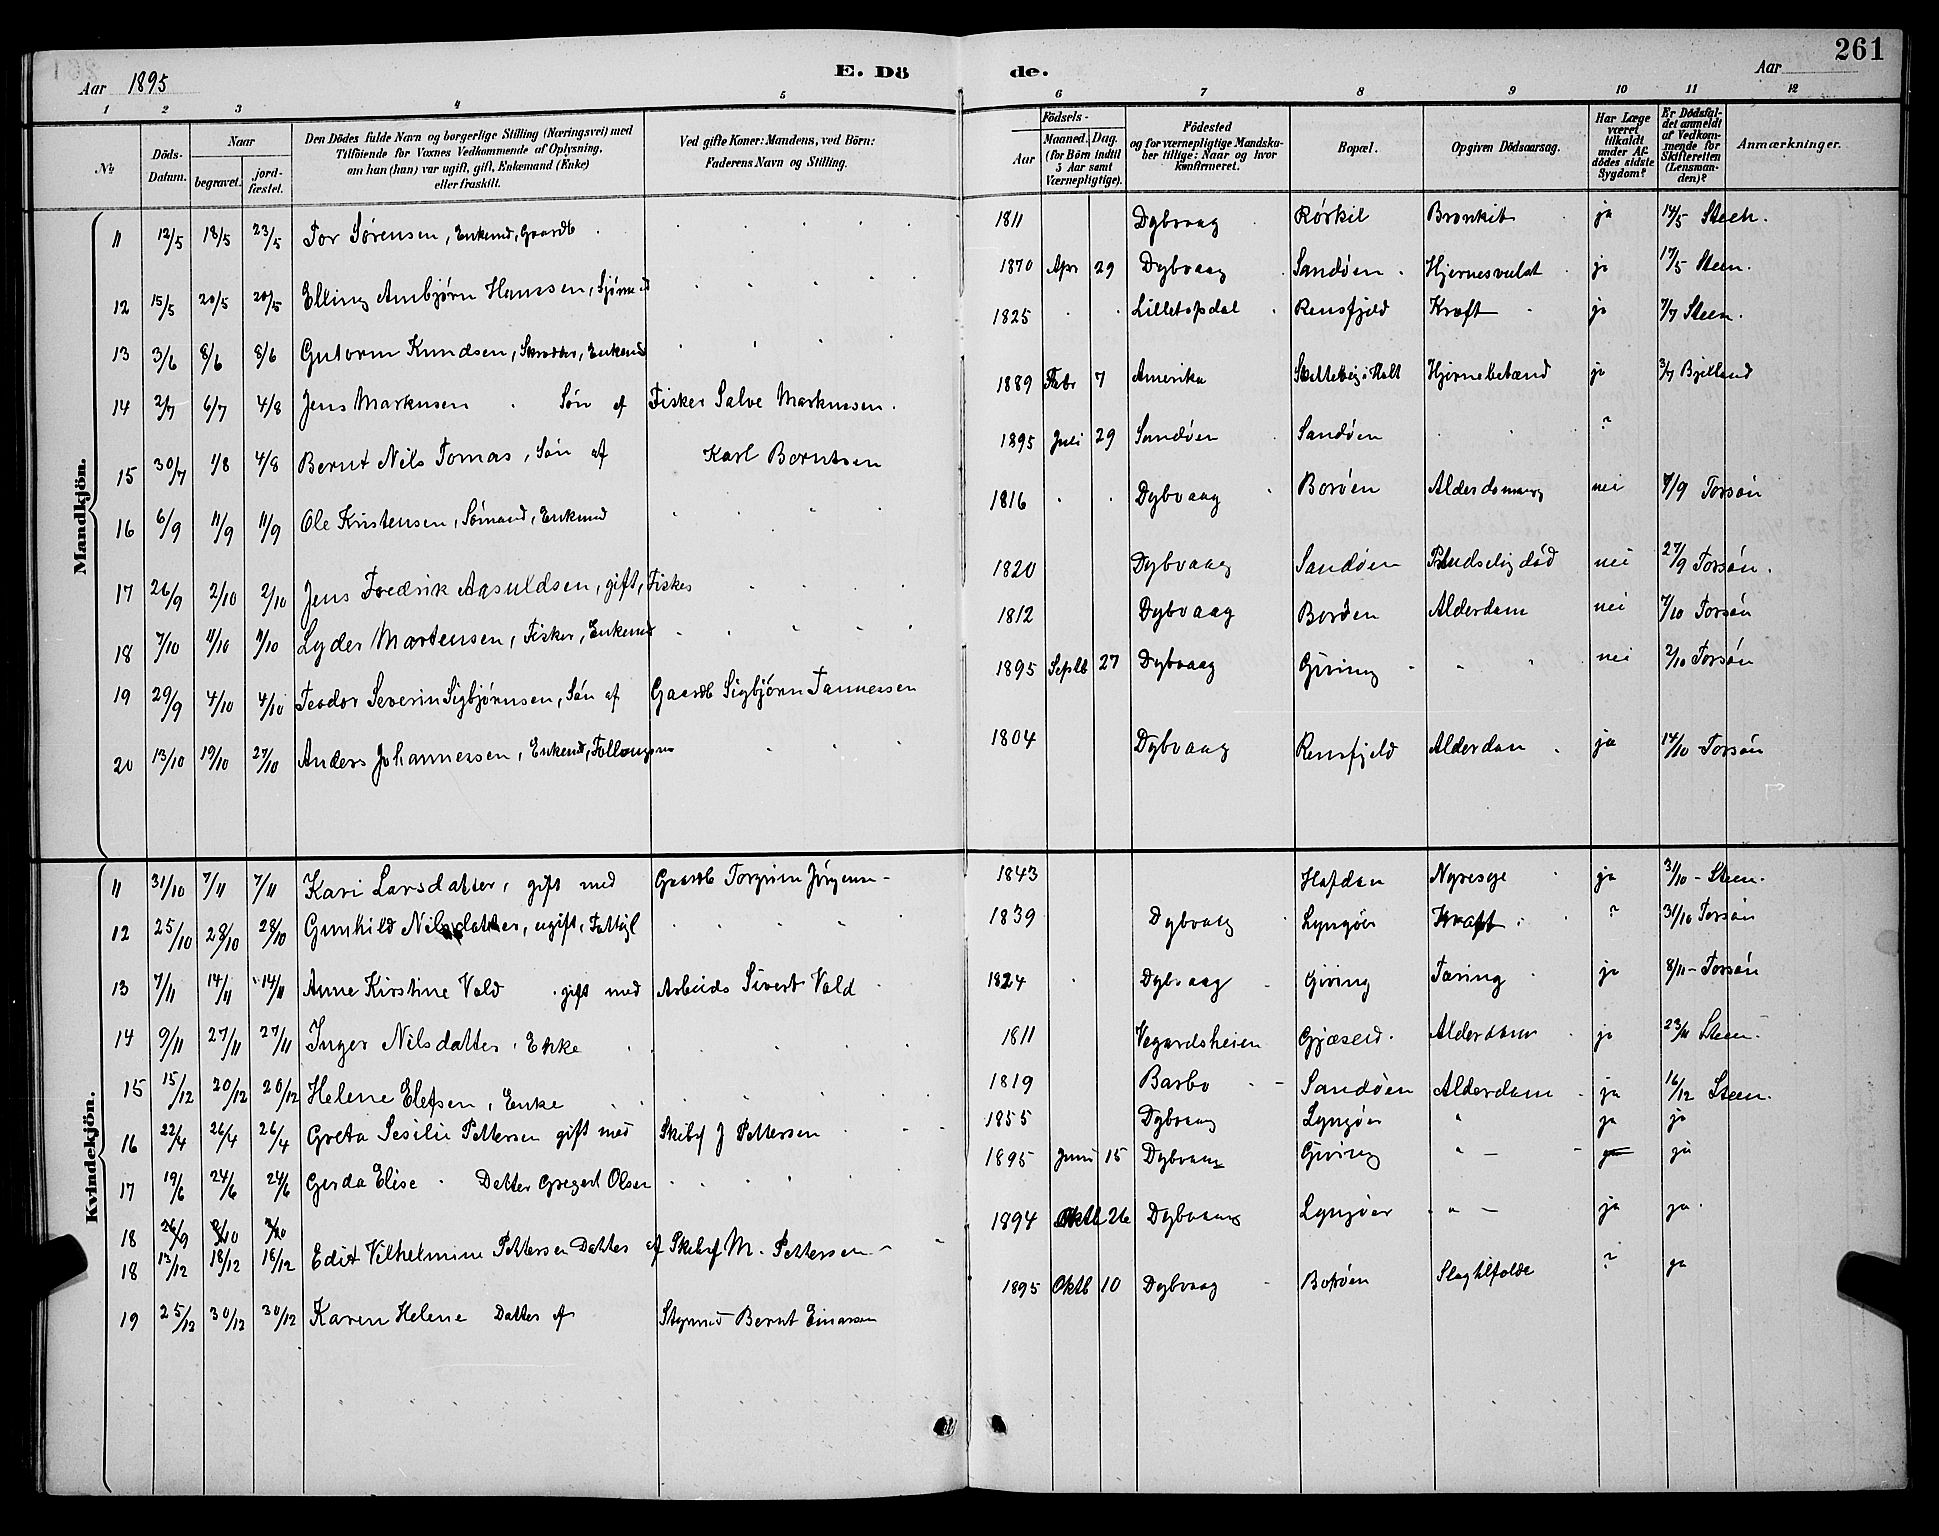 261
Aar 1895 E. Dö de. Aar
1 2 3 4 5 6 7 8 9 10 11 12
No. Döds-Datum. Naar begravet. jordfæstet. Den Dödes fulde Navn og borgerlige Stilling (Næringsvei) med Tilföiende for Voxnes Vedkommende af Oplysning, om han (hun) var ugift, gift, Enkemand (Enke) eller fraskilt. Ved gifte Koner: Mandens, ved Börn: Faderens Navn og Stilling. Födsels- Aar Maaned. Dag. (for Börn indtil 5 Aar samt Værnepligtige). Födested og for værnepligtige Mandskaber tillige: Naar og hvor konfirmeret. Bopæl. Opgiven Dödsaarsag. Har Læge været tilkaldt under Afdödes sidste Sygdom? Er Dödsfaldet anmeldt af Vedkommende for Skifteretten (Lensmanden)? Anmærkninger.
Mandkjön.
11 12/5 18/5 23/5 Tor Sørensen, Enkemd, Gaardb. 1811 Dybvaag Rørkil Bronkit ja 14/5 Steen.
12 15/5 20/5 20/5 Elling Ambjørn Hanssen, Sjømd 1870 Apr 29 Dybvaag Sandøen Hjernesvulst ja 17/5 Steen.
13 3/6 8/6 8/6 Gutorm Knudsen, Skrædder, Enkemd 1825 Lilletopdal Rensfjeld Kræft ja 7/7 Steen.
14 2/7 6/7 4/8 Jens Markusen Søn af Fisker Salve Markussen. 1889 Febr 7 Amerika i Holt Hjernebetænd ja 3/7 Bjelland
15 30/7 1/8 4/8 Bernt Nils Tomas, Søn af Karl Berntsen 1895 Juli 29 Sandøen Sandøen ?
16 6/9 11/9 11/9 Ole Kristensen, Sømand, Enkemd 1816 Dybvaag Borøen Alderdomssvag nei 7/9 Torsøn
17 26/9 2/10 2/10 Jens Fredrik Aasuldsen, gift, Fisker 1820 Dybvaag Sandøen Pludselig død nei 27/9 Torsøn.
18 7/10 11/10 11/10 Lyder Mortensen, Fisker, Enkemd 1812 Dybvaag Borøen Alderdom nei 7/10 Torsøn
19 29/9 4/10 4/10 Teodor Severin Sigbjørnsen, Søn af Gaardb Sigbjørn Tannessen 1895 Septb 27 Dybvaag Giving nei 2/10 Torsøn
20 13/10 19/10 27/10 Anders Johannessen, Enkemd, 1804 Dybvaag Rensfjeld Alderdom ja 14/10 Torsøn
Kvindekjön.
11 31/10 7/11 7/11 Kari Larsdatter, gift med Gaardb Torgrim Jørgensen 1843 Nyresyge ja 31/10 - Steen.
12 25/10 28/10 28/10 Gunhild Nilsdatter, ugift, Fattigl 1839 Dybvaag Lyngøer Kræft ? 31/10 Torsøn
13 7/11 14/11 14/11 Anne Kirstine Vold gift med Arbeids Sivert Vold 1824 Dybvaag Giving Tæring ja 8/11 - Torsøn
14 9/11 27/11 27/11 Inger Nilsdatter, Enke 1811 Vegardsheien Alderdom ja 23/11 Steen.
15 15/12 20/12 20/12 Helene Elefsen, Enke 1819 Barbo Sandøen Alderdom ja 16/12 Steen.
16 22/4 26/4 26/4 Greta Sesilie Pettersen gift med Skibsf J Pettersen 1855 Dybvaag Lyngøer " ja ja
17 19/6 24/6 24/6 Gerda Elise Datter Gregert Olsen 1895 Juni 15 Dybvaag Giving " ja ja
18 26/9 3/10 3/10
18 13/12 18/12 18/12 Edit Vilhelmine Pettersen Datter af Skibsf M. Pettersen 1894 Oktb 26 Dybvaag Lyngøer " ja ja
19 25/12 30/12 30/12 Karen Helene Datter af Styrmd Bernt Einarsen 1895 Oktb 10 Dybvaag Borøen Slagtilfælde ? ja